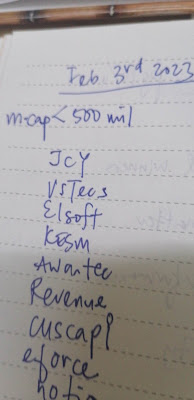 Feb. 3rd 2023
mcap < 500 mil
JCY
VSTECS
Elsoft
KESM
Awantec
Revenue
cuscapi
eforce
notion